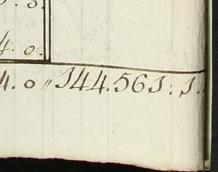 4. 0.
4. 0 〃 144.561: 1.